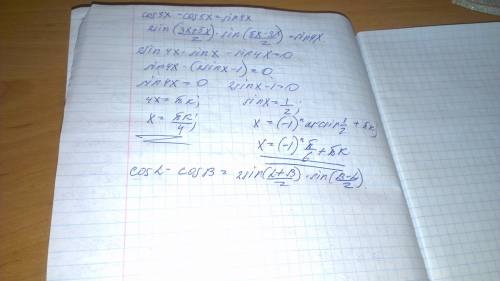 cos3x - cos5x = sin4x
2sin(3x+5x/2)·sin(5x-3x/2) = sin4x
2sin4x·sinx - sin4x = 0
sin4x·(2sinx-1) = 0
sin4x = 0 2sinx-1 = 0
4x = πk; sinx = 1/2;
x = πk/4; x = (-1)ⁿ arcsin 1/2 + πk;
x = (-1)ⁿ π/6 + πk
cosL - cosB = 2sin(L+B/2)·sin(B-L/2)